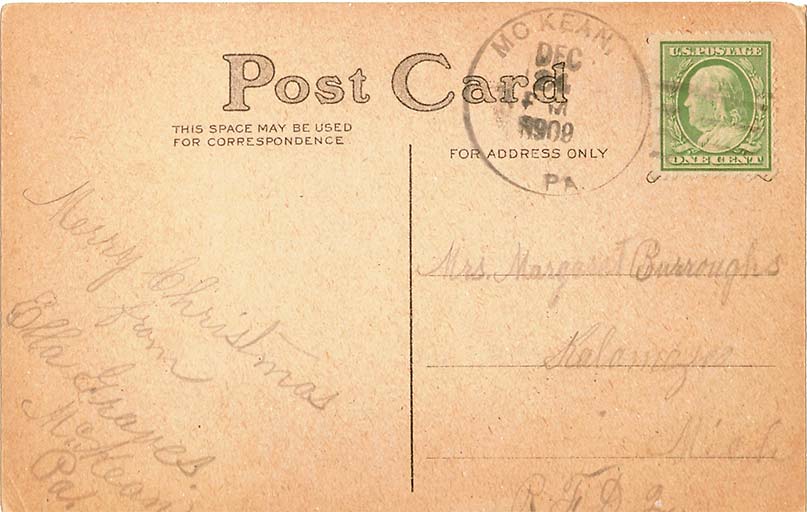 Post Card
THIS SPACE MAY BE USED
FOR CORRESPONDENCE
FOR ADDRESS ONLY
MC KEAN.
DEC
PM
1909
PA.
U.S. POSTAGE
ONE CENT
Merry Christmas
from
Ella Graves.
McKean
Pa.
Mrs. Margaret Burroughs
Kalamazoo
Mich
R.F.D.